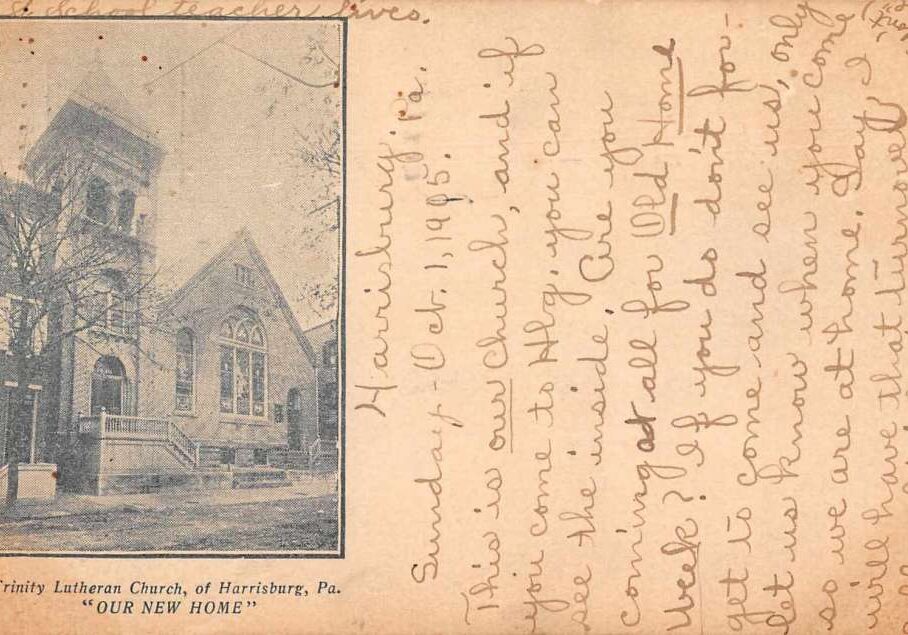 S. School teacher lives.
Harrisburg. Pa.
Sunday - Oct. 1, 1905.
This is our Church, and if
you come to Hbg. you can
see the inside. Are you
coming at all for Old Home
Week? If you do don't for-
get to come and see us, only
let us know when you come
so we are at home. Say I
will have that turnover
Trinity Lutheran Church, of Harrisburg, Pa.
"OUR NEW HOME"